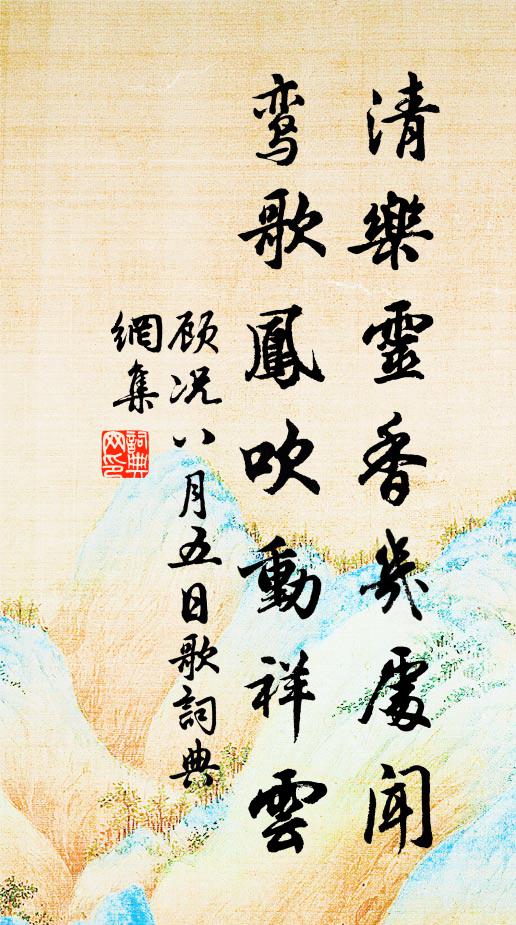 清樂靈香幾處聞
鸾歌鳳吹動祥雲
顾况八月五日歌詞典
網集
詞典
网印